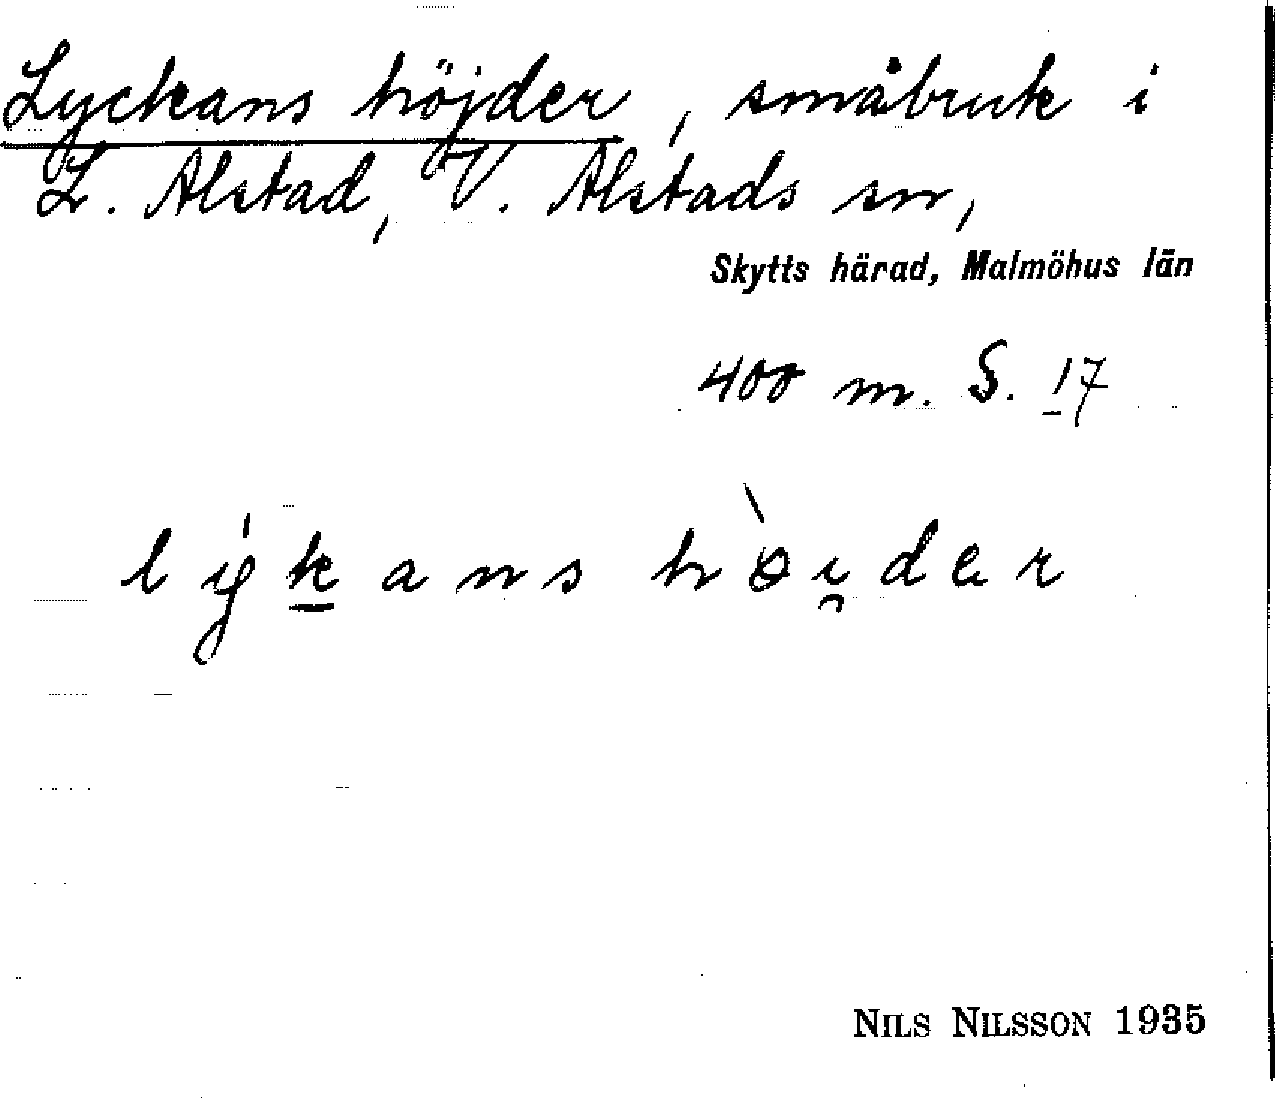 Lyckans höjder, småbruk i
L. Alstad, V. Alstads sn,
Skytts härad, Malmöhus län
400 m. S. 17
lýk̲ans hòi̯der
NILS NILSSON 1935